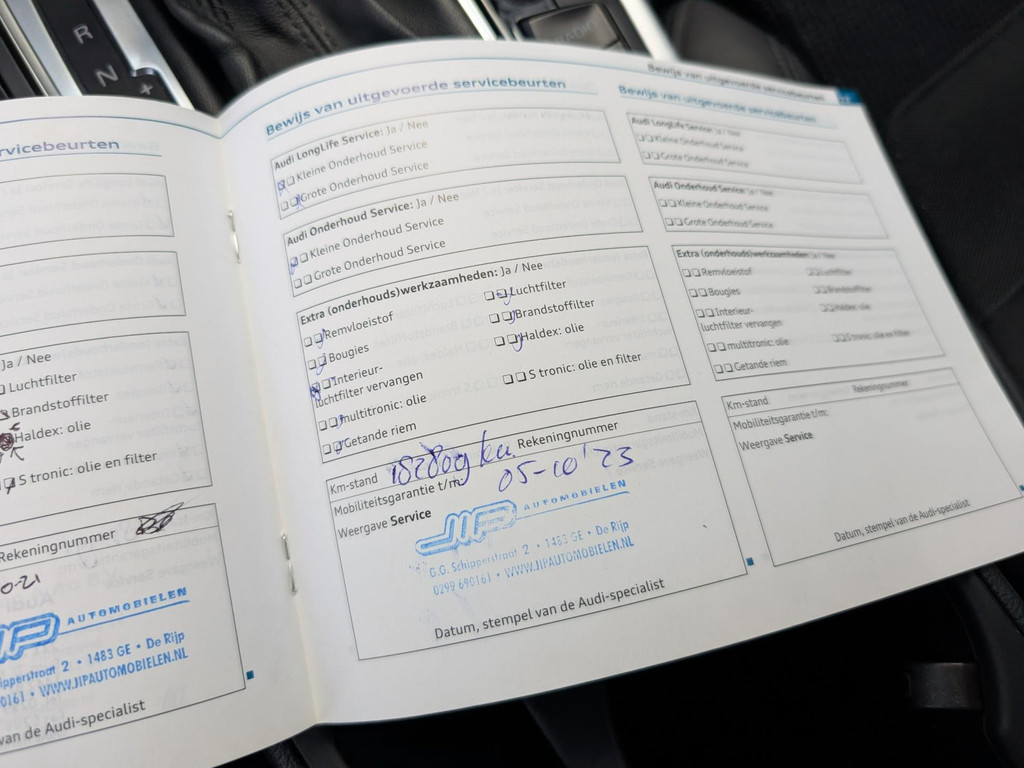 R
N
+
rvicebeurten
Ja / Nee
Luchtfilter
Brandstoffilter
Haldex: olie
S tronic: olie en filter
Rekeningnummer
0-21
AUTOMOBIELEN
ipperstraat 2 • 1483 GE • De Rijp
0161 • WWW.JIPAUTOMOBIELEN.NL
van de Audi-specialist
Bewijs van uitgevoerde servicebeurten
Audi LongLife Service: Ja / Nee
Kleine Onderhoud Service
Grote Onderhoud Service
Audi Onderhoud Service: Ja / Nee
Kleine Onderhoud Service
Grote Onderhoud Service
Extra (onderhouds)werkzaamheden: Ja / Nee
Remvloeistof
Luchtfilter
Bougies
Brandstoffilter
Interieur-
luchtfilter vervangen
Haldex: olie
multitronic: olie
S tronic: olie en filter
Getande riem
Km-stand
Rekeningnummer
Mobiliteitsgarantie t/m:
05-10'23
Weergave Service
JIP AUTOMOBIELEN
G.G. Schipperstraat 2 • 1483 GE • De Rijp
0299 690161 • WWW.JIPAUTOMOBIELEN.NL
Datum, stempel van de Audi-specialist
Bewijs van uitgevoerde servicebeurten
Bewijs van uitgevoerde servicebeurten
Audi LongLife Service: Ja / Nee
Kleine Onderhoud Service
Grote Onderhoud Service
Audi Onderhoud Service: Ja / Nee
Kleine Onderhoud Service
Grote Onderhoud Service
Extra (onderhouds)werkzaamheden: Ja / Nee
Remvloeistof
Luchtfilter
Bougies
Brandstoffilter
Interieur-
luchtfilter vervangen
Haldex: olie
multitronic: olie
S tronic: olie en filter
Getande riem
Km-stand
Rekeningnummer
Mobiliteitsgarantie t/m:
Weergave Service
Datum, stempel van de Audi-specialist